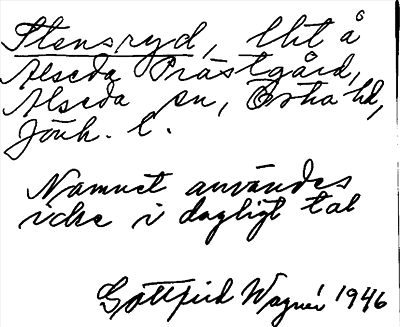 Stensryd, lht å
Alseda Prästgård,
Alseda sn, Östra hd,
Jönk. l.
Namnet användes
icke i dagligt tal
Gottfrid Wagnér 1946